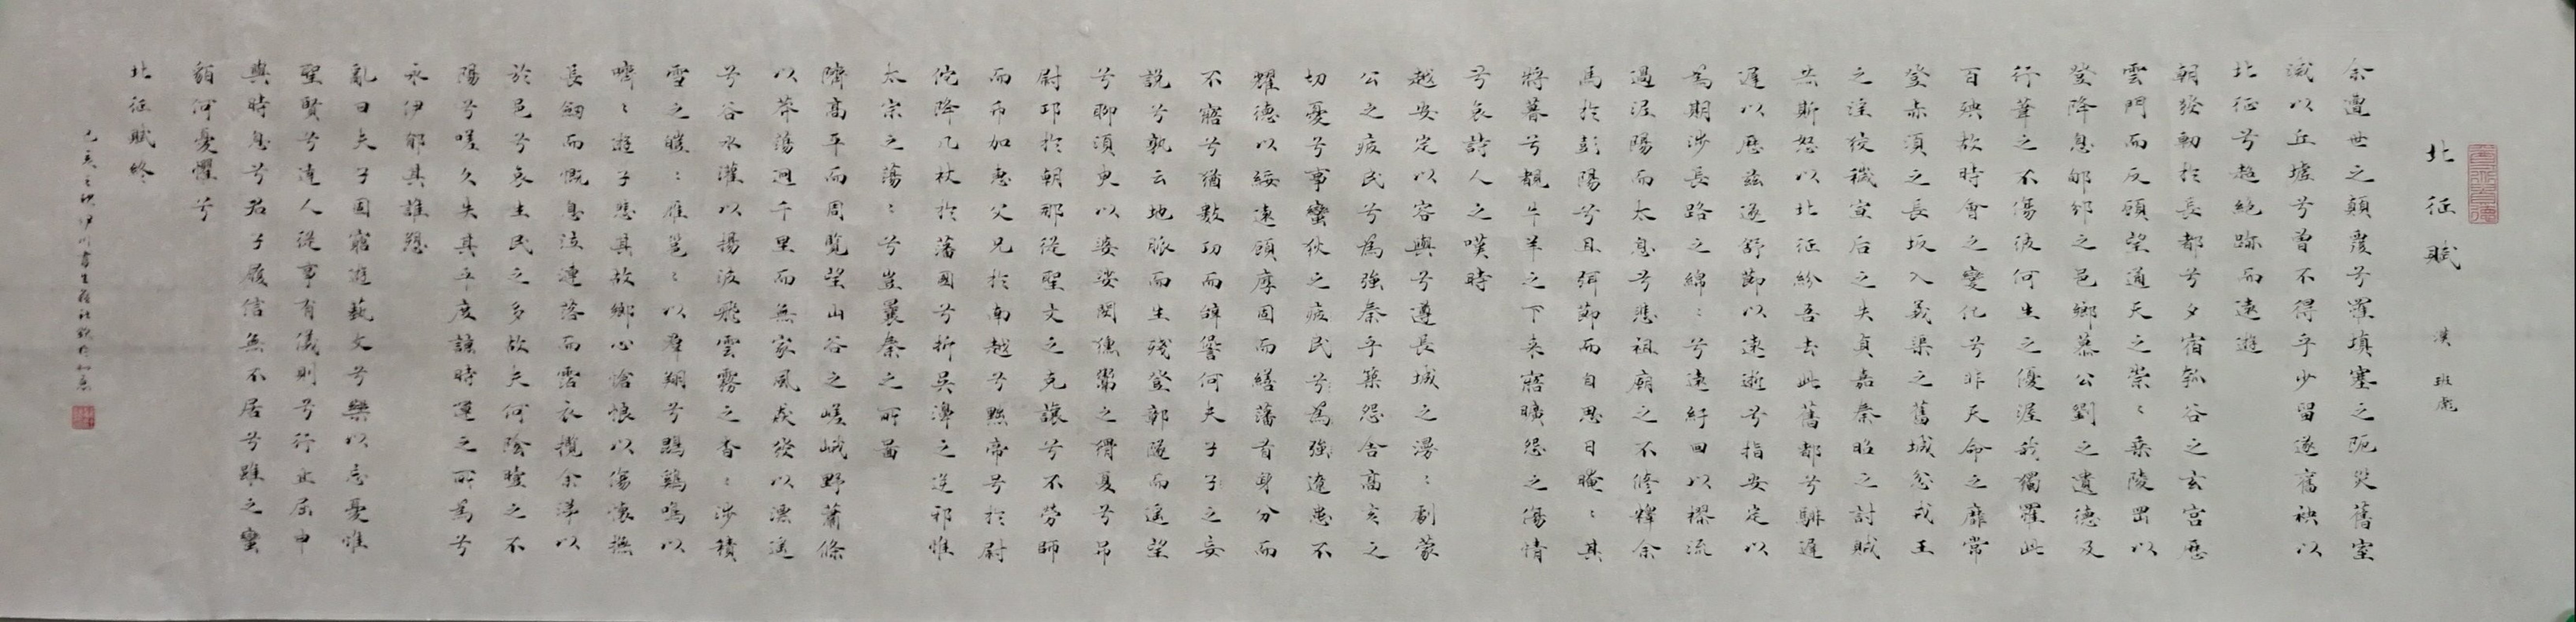 北征賦 漢 班彪
余遭世之顛覆兮罹填塞之阨災舊室
滅以丘墟兮曾不得乎少留遂奮袂以
北征兮超絕跡而遠遊
朝發軔於長都兮夕宿瓠谷之玄宮歷
雲門而反顧望通天之崇〻乘陵崗以
登降息郇邠之邑鄉慕公劉之遺德及
行葦之不傷彼何生之優渥我獨罹此
百殃故時會之變化兮非天命之靡常
登赤須之長坂入義渠之舊城忿戎王
之淫狡穢宣后之失貞嘉秦昭之討賊
赫斯怒以北征紛吾去此舊都兮騑遲
遲以歷茲遂舒節以遠逝兮指安定以
為期涉長路之綿〻兮遠紆回以樛流
過泥陽而太息兮悲祖廟之不修釋余
馬於彭陽兮且弭節而自思日晻〻其
將暮兮覩牛羊之下來寤曠怨之傷情
兮哀詩人之嘆時
越安定以容與兮遵長城之漫〻劇蒙
公之疲民兮為強秦乎築怨舍高亥之
切憂兮事蠻狄之疲民兮為強遼患不
耀德以綏遠顧厚固而繕藩首身分而
不寤兮猶數功而辭諐何夫子子之妄
說兮孰云地脈而生殘登鄣隧而遙望
兮聊須臾以婆娑閔獯鬻之猾夏兮吊
尉邛於朝那從聖文之克讓兮不勞師
而币加惠父兄於南越兮黜帝号於尉
佗降几杖於藩國兮折吳濞之逆邪惟
太宗之蕩〻兮豈曩秦之所圖
隮高平而周覽望山谷之嵯峨野蕭條
以莽蕩迥千里而無家風猋發以漂遙
兮谷水灌以揚波飛雲霧之杳〻涉積
雪之皚〻雁邕〻以群翔兮鵾雞鳴以
嚌〻遊子悲其故鄉心愴悢以傷懷撫
長劒而慨息泣漣落而霑衣攬余涕以
於邑兮哀生民之多故夫何陰曀之不
陽兮嗟久失其平度諒時運之所為兮
永伊郁其誰愬
亂曰夫子固窮遊藝文兮樂以忘憂惟
聖賢兮達人從事有儀則兮行止屈申
與時息兮君子履信無不居兮雖之蠻
貊何憂懼兮
北征賦終
己亥之秋伊川書生